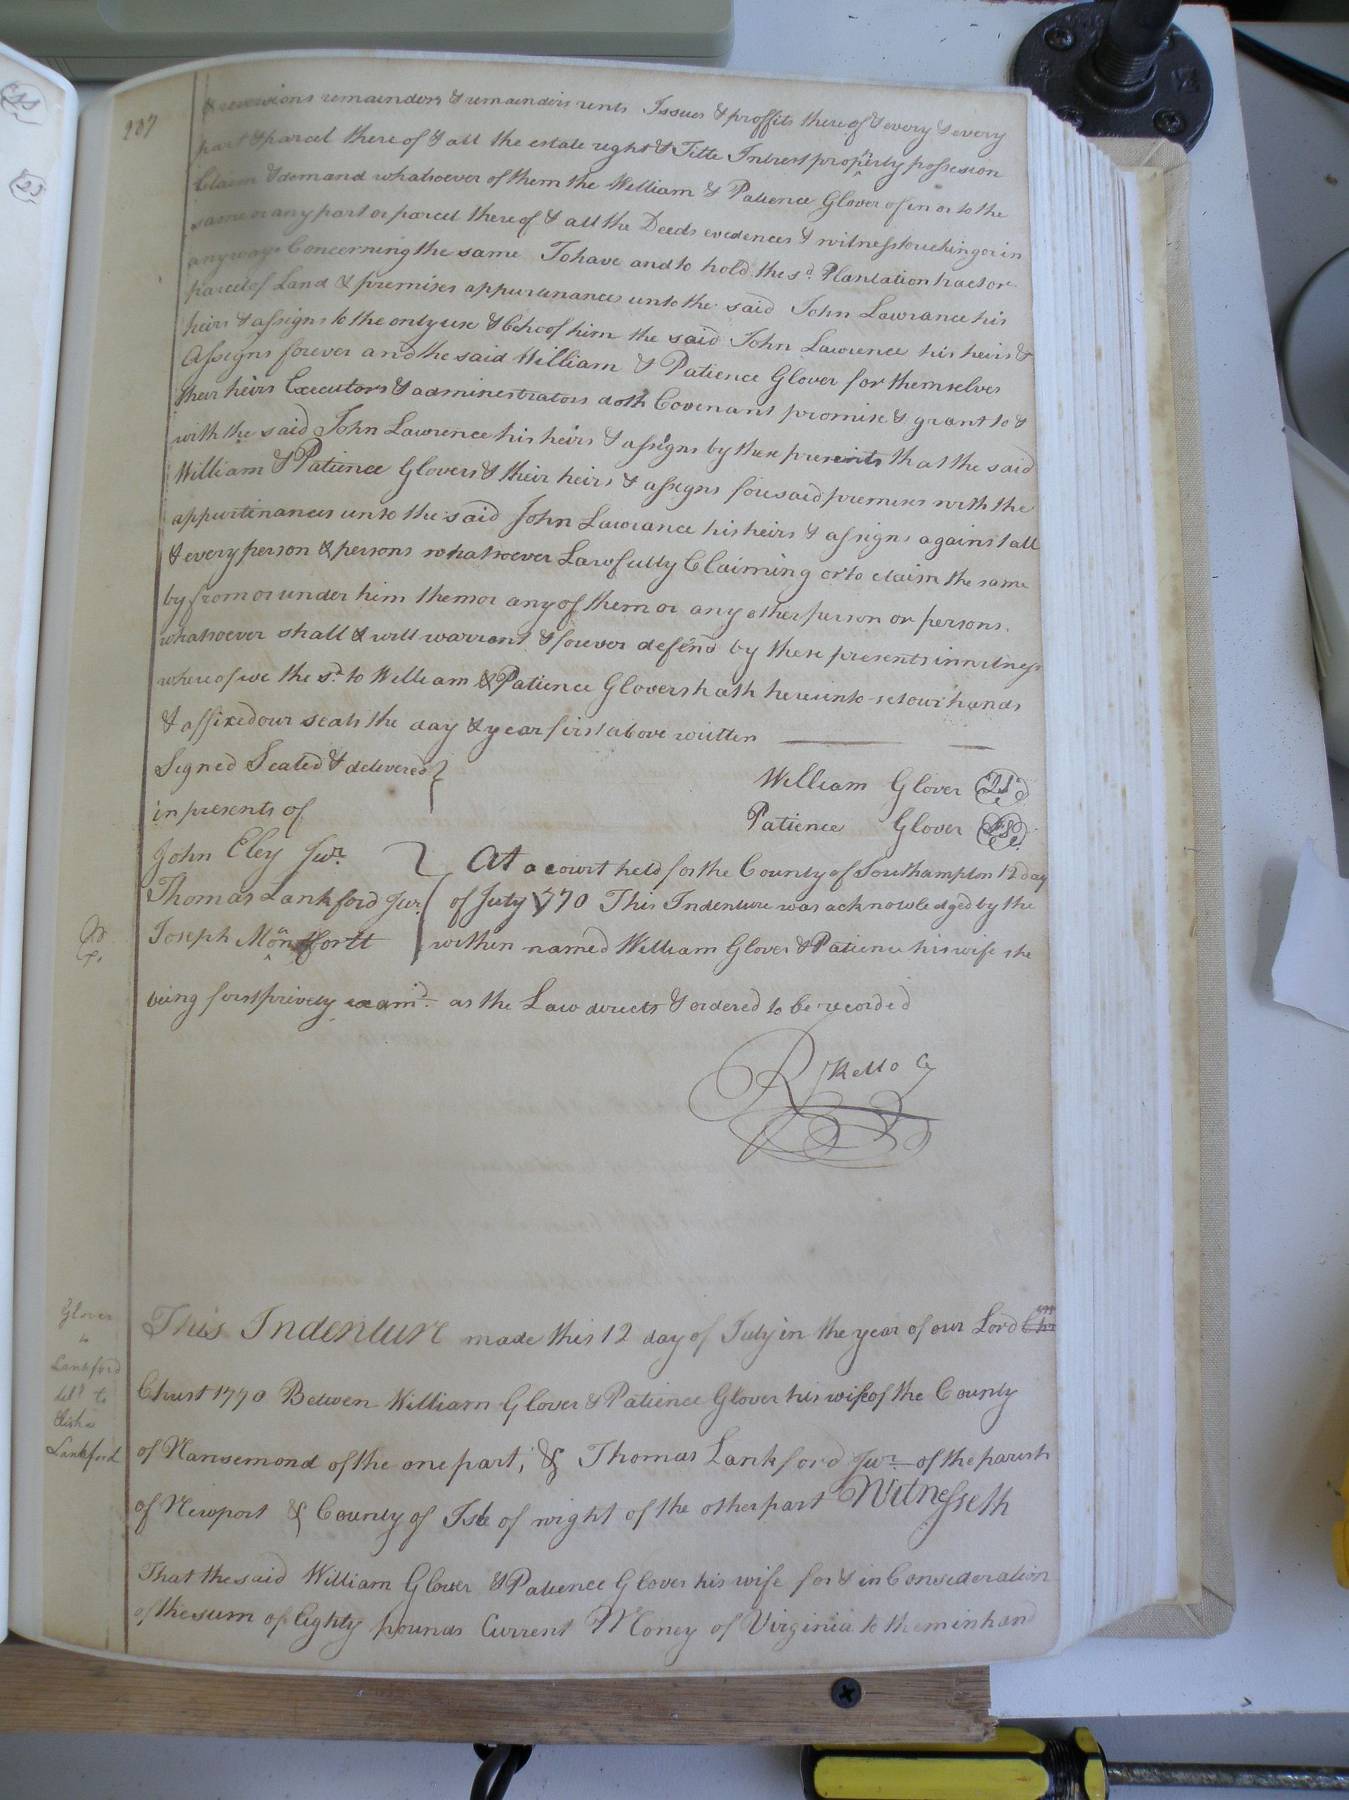 207
& reversions remainders & remainders rents Issues & proffits there of & every & every
part & parcel there of & all the estate right & Title Intrest property possession
Claim & demand whatsoever of them the William & Patience Glover of in or to the
same or any part or parcel there of & all the Deeds evedences & witness touching or in
any ways Concerning the same To have and to hold the sd. Plantation tract or
parcel of Land & premises appurtenances unto the said John Lawrance his
heirs & assigns to the only use & behoof him the said John Lawrence his heirs &
Assigns forever and the said William & Patience Glover for themselves
their heirs Executors & administrators doth Covenant promise & grant to &
with the said John Lawrence his heirs & assigns by these presents that the said
William & Patience Glovers & their heirs & assigns foresaid premises with the
appurtinances unto the said John Lawrance his heirs & assigns against all
& every person & persons whatsoever Lawfully Claiming or to claim the same
by from or under him them or any of them or any other person or persons
whatsoever shall & will warrant & forever defend by these presents in witness
where of we the sd. to William & Patience Glovers hath hereunto set our hands
& affixed our seals the day & year first above written
Signed Sealed & delivered
in presents of
William Glover
Patience Glover
John Eley Jur.
Thomas Lankford Jur.
Joseph Montfortt
At a court held for the County of Southampton 12 day
of July 1770 This Indenture was acknowledged by the
within named William Glover & Patience his wife she
being first privety examd. as the Law directs & ordered to be recorded
R Kello
Glover
to
Lankford
Elisha
Lankford
This Indenture made this 12 day of July in the year of our Lord
Christ 1770 Between William Glover & Patience Glover his wife of the County
of Nansemond of the one part, & Thomas Lankford Jur. of the parish
of Newport & County of Isle of wight of the other part Witnesseth
That the said William Glover & Patience Glover his wife for & in Consideration
of the sum of Eighty pounds Current Money of Virginia to them in hand